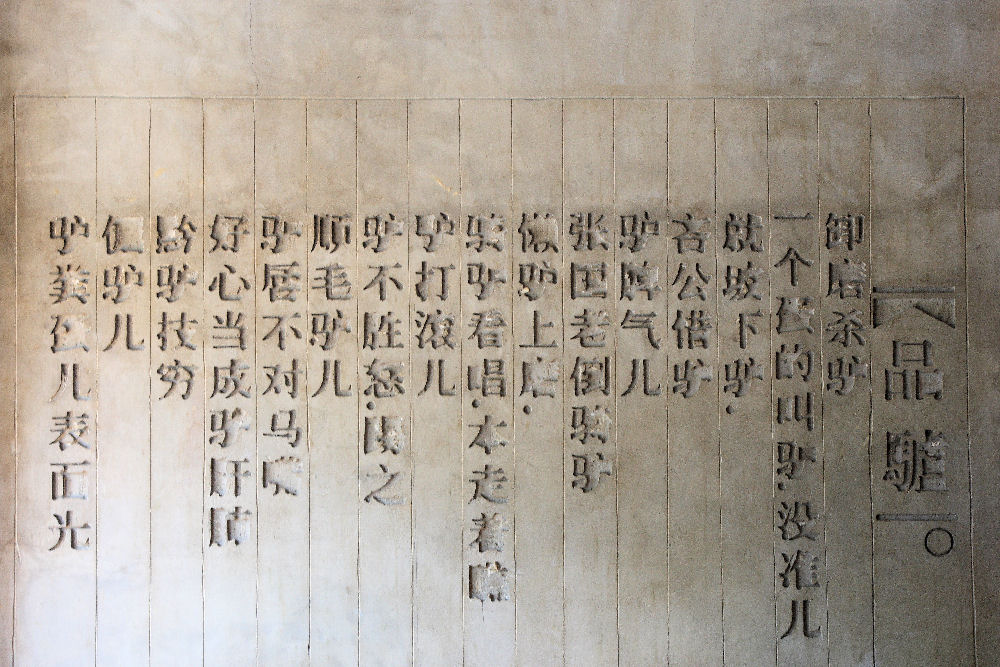 品驢。
卸磨杀驴
一个蛋的叫驴·没准儿
就坡下驴·
吝公借驴
驴脾气儿
张国老倒骑驴
懒驴上磨·
骑驴看唱·本走着瞧
驴打滚儿
驴不胜怒·蹄之
顺毛驴儿
驴唇不对马嘴
好心当成驴肝肺
黔驴技穷
倔驴儿
驴粪蛋儿表面光